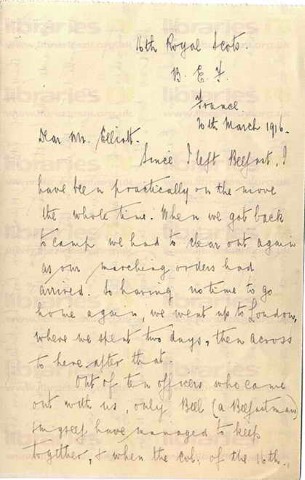 16th Royal Scots.
B. E. F.
France
10th March 1916.
Dear Mr. Elliott.
Since I left Belfast, I
have been practically on the move
the whole time. When we got back
to camp we had to clear out again
as our marching orders had
arrived. So having no time to go
home again, we went up to London,
where we spent two days, then across
to here after that.
Out of ten officers who came
out with us, only Bell (a Belfastman)
& myself have managed to keep
together, & when the Col. of the 16th